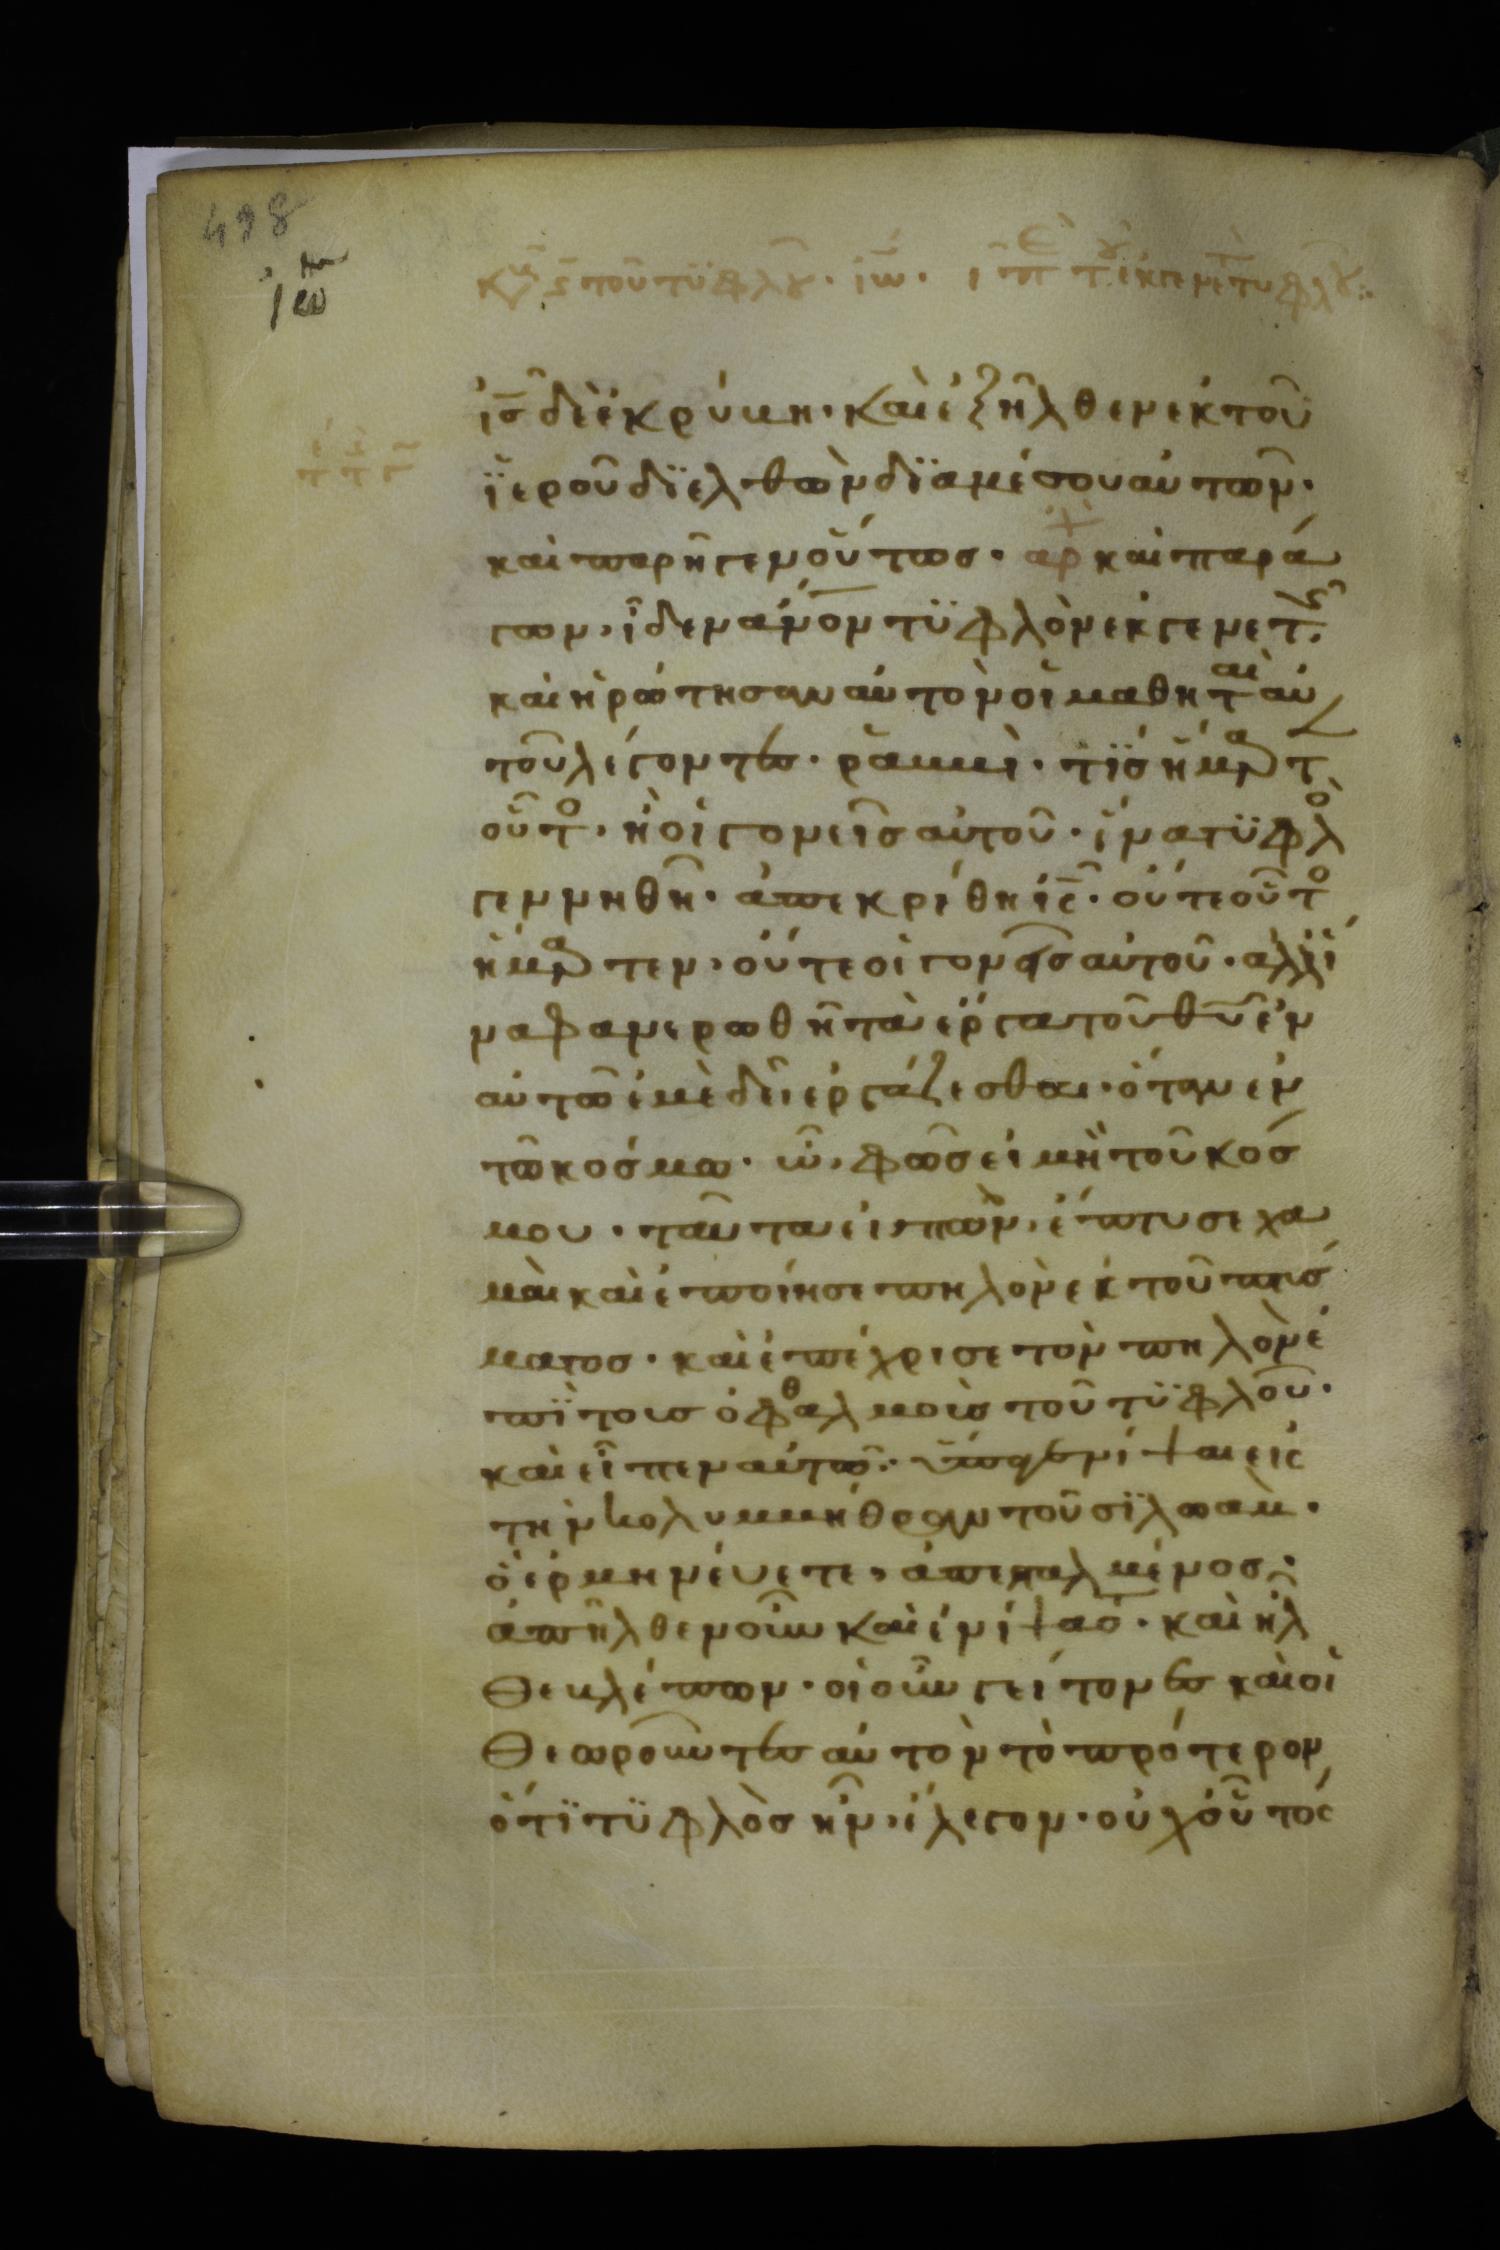 498
ἰω
κυ ϛ τοῦ τυφλοῦ. ἰω.
ι̅ς̅ δὲ ἐκρύβη. καὶ ἐξῆλθεν ἐκ τοῦ
ϊεροῦ διελθὼν δϊαμέσου αὐτῶν.
καὶ παρῆγεν οὕτως. αρχ καὶ παρά
γων, ἶδεν ἀνο̅ν τϋφλὸν ἐκ γενετῆς.
καὶ ἠρώτησαν αὐτὸν οἱ μαθηταὶ αὐ
τοῦ λέγοντες. ῥαββὶ. τίς ἥμαρτ
οὗτο. ἢ οἱ γονεῖς αὐτοῦ. ἵνα τϋφλὸ
γεννηθῆ. ἀπεκρίθη ι̅ς̅. οὔτε οὗτο
ἥμαρτεν. οὔτε οἱ γονεῖς αὐτοῦ. ἀλλ ἵ
να φανερωθῆ τὰ ἔργα τοῦ θ̅υ̅ ἐν
αὐτῶ ἐμὲ δεῖ ἐργάζεσθαι. ὅταν ἐν
τῶ κόσμω. ὦ, φῶς εἰμὴ τοῦ κόσ
μου. ταῦτα εἰπὼν, ἔπτυσε χα
μαὶ καὶ ἐποίησε πηλὸν ἐκ τοῦ πτύσ
ματος. καὶ ἐπέχρισε τὸν πηλὸν ἐ
πϊ τοὺς ὀφθαλμοὺς τοῦ τϋφλοῦ.
καὶ εἶπεν αὐτῶ. ὕπαγε νίψαι εἰς
τὴν κολυμβήθραν τοῦ σϊλωάμ.
ὃ ἑρμηνέυετε, ἀπεσταλμένος.
ἀπῆλθεν οὖν καὶ ἐνίψατο. καὶ ἦλ
θε βλέπων. οἱ οὖν γείτονες καὶ οἱ
θεωροῦντες αὐτὸν τὸ πρότερον
ὅτϊ τϋφλὸς ἦν, ἔλεγον. οὐχ οὗτός